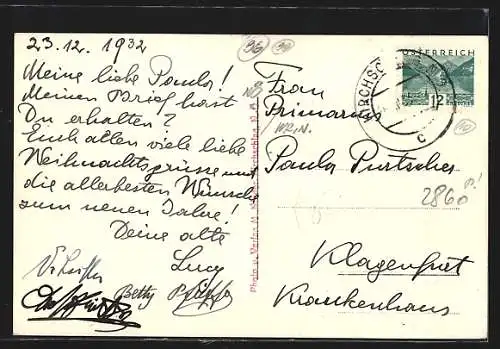 23.12.1932
Meine liebe Paula!
Meinen Brief hast
Du erhalten?
Euch allen viele liebe
Weihnachtsgrüsse und
die allerbesten Wünsche
zum neuen Jahre!
Deine alte
Lucy
Betty
Photo u. Verlag
Frau
Primarius
Paula Purtscher
Klagenfurt
Krankenhaus
ÖSTERREICH
12
KIRCHSC
c
96
2860